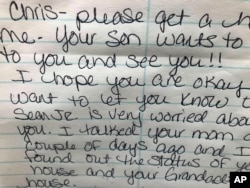 Chris- please get a
me- your son wants to
to you and see you!!
I hope you are okay
want to let you know
Sean Jr is very worried abo
you. I talked your mom
couple of days ago and I
found out the status of
house and your Grandad
house.
AP